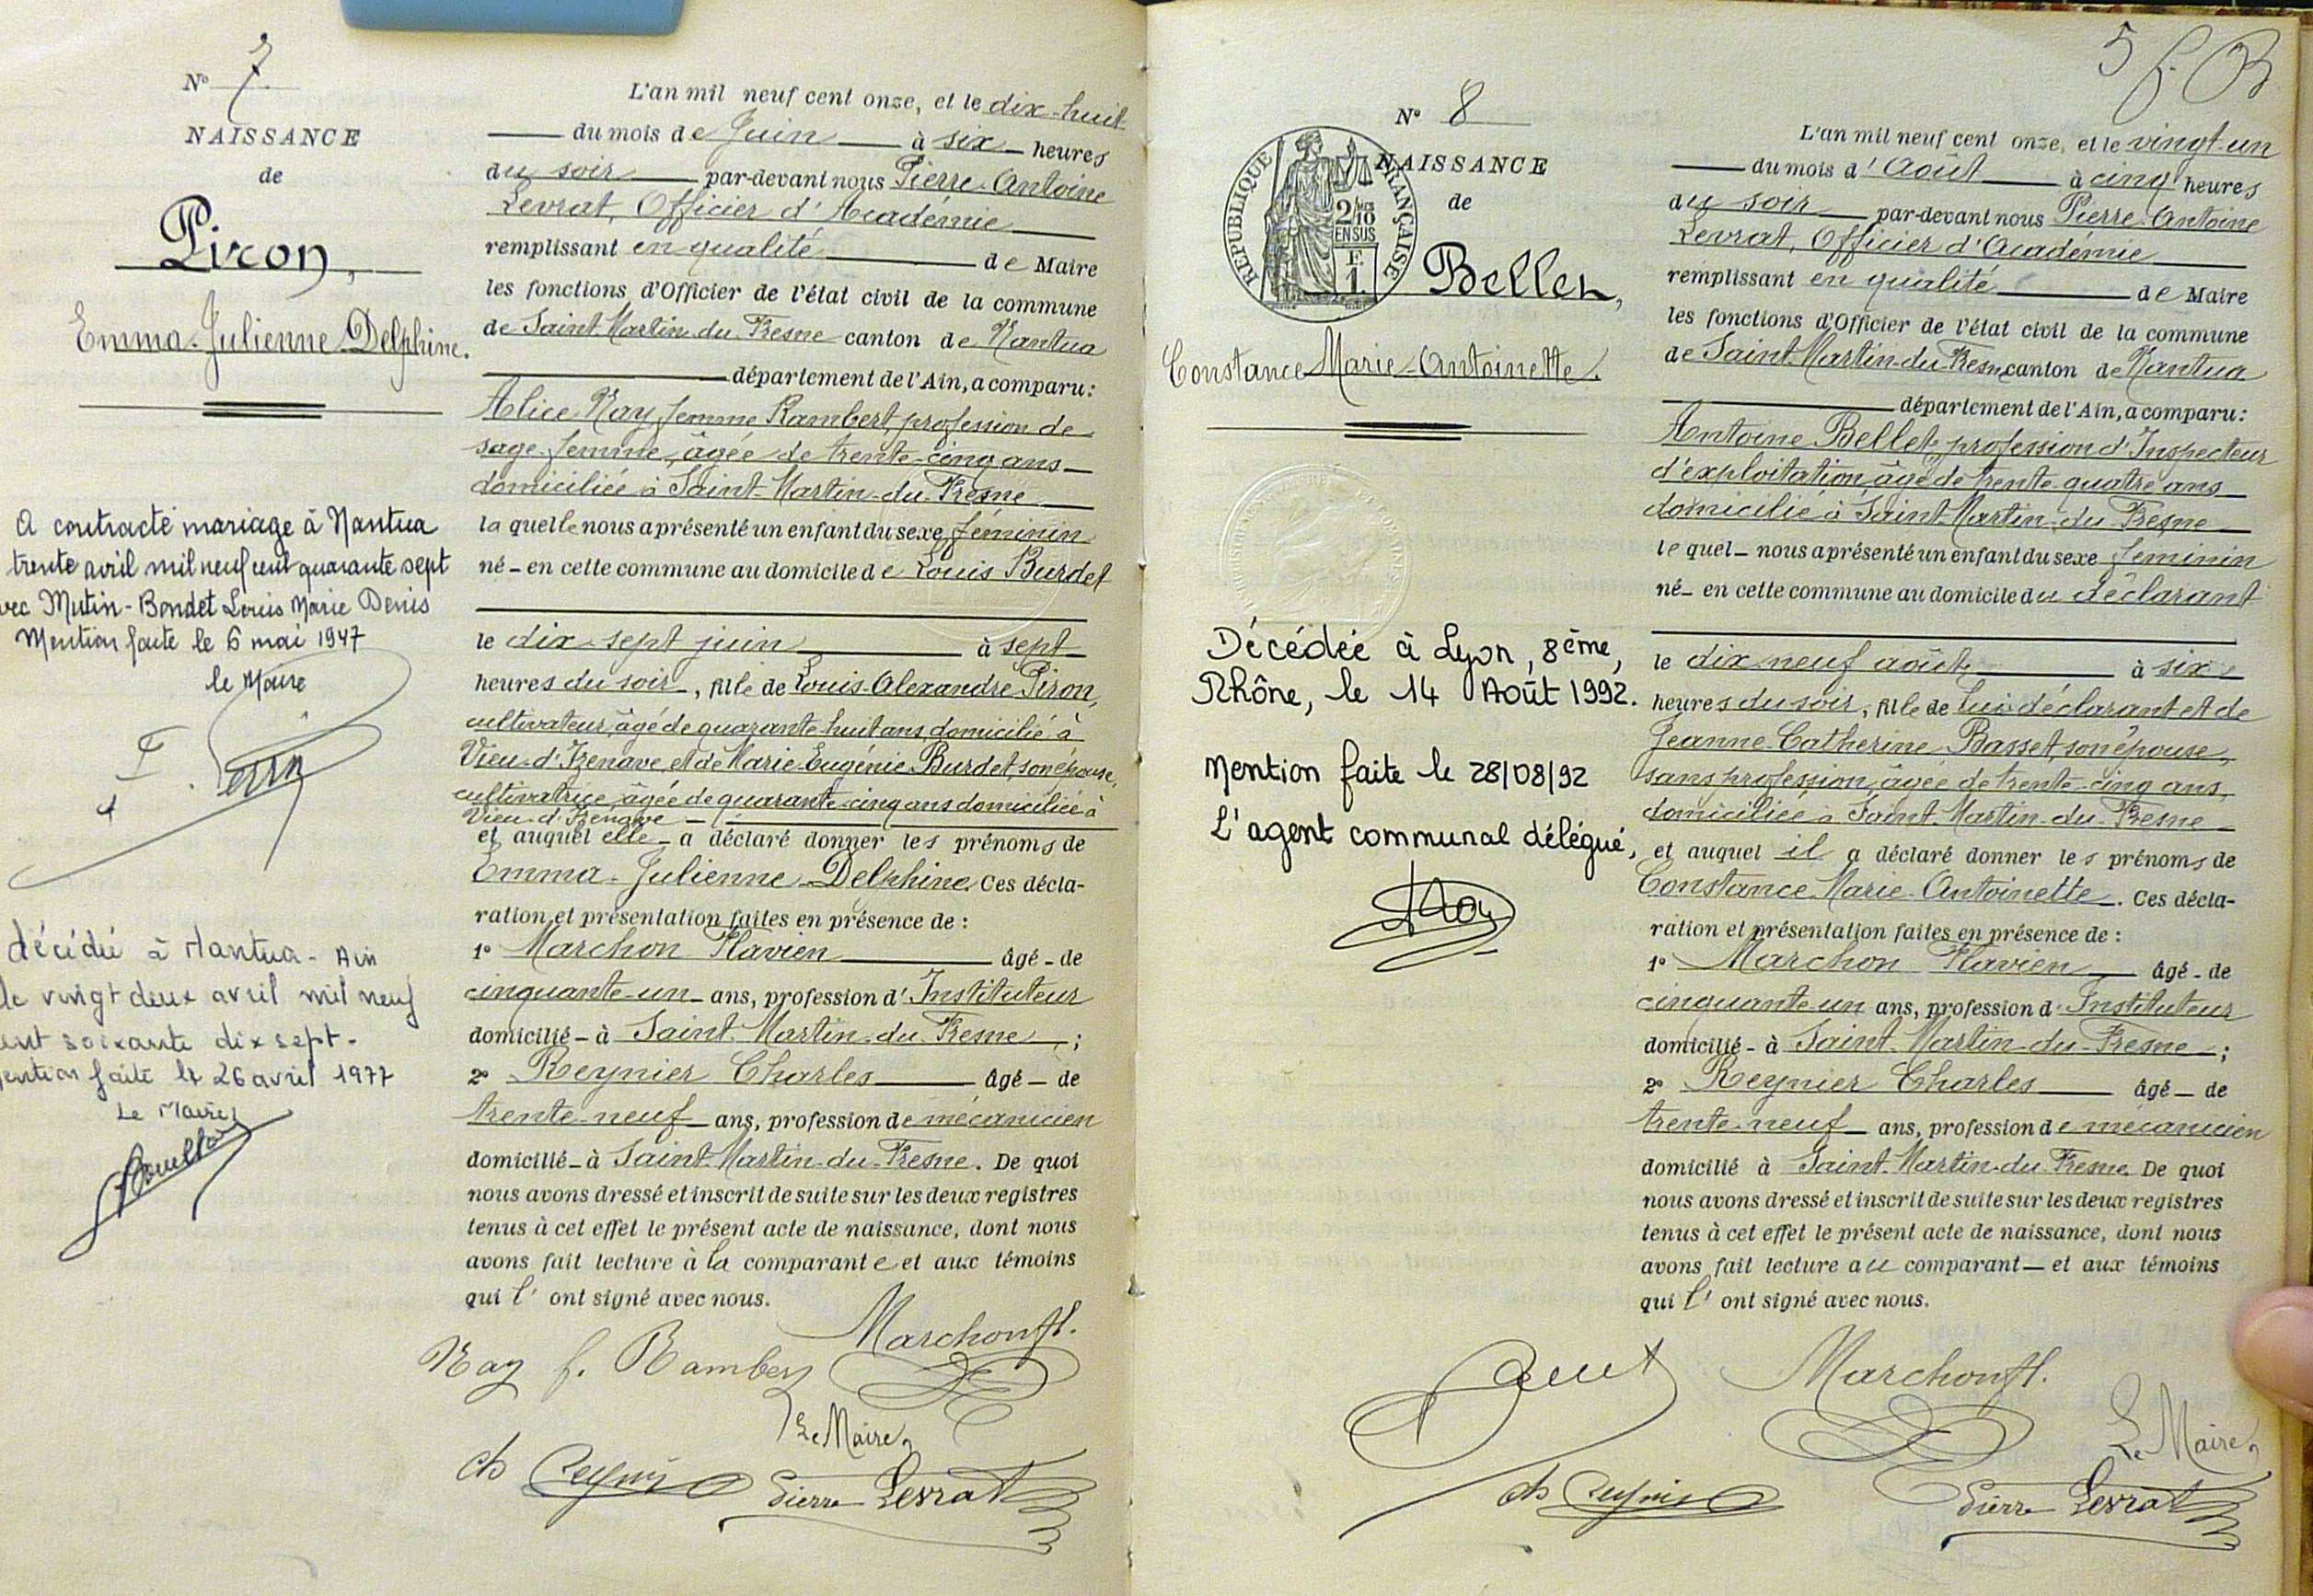 N° 7
NAISSANCE
de
Piron,
Emma-Julienne-Delphine.
A contracté mariage à Nantua
trente avril mil neuf cent quarante sept
vec Mutin-Bondet Louis Marie Denis
Mention faite le 6 mai 1947
le Maire
décédée à Nantua - Ain
le vingt deux avril mil neuf
ent soixante dix sept -
ention faite le 26 avril 1977
Le Maire,
L'an mil neuf cent onze, et le dix-huit
du mois de Juin à six heures
du soir par-devant nous Pierre-Antoine
Levrat, Officier d'Académie
remplissant en qualité de Maire
les fonctions d'Officier de l'état civil de la commune
de Saint-Martin-du-Fresne canton de Nantua
département de l'Ain, a comparu:
Alice Nay, femme Rambert, profession de
sage-femme, âgée de trente-cinq ans
domiciliée à Saint-Martin-du-Fresne
la quelle nous a présenté un enfant du sexe féminin
né - en cette commune au domicile de Louis Burdet
le dix-sept juin à sept
heures du soir, fille de Louis-Alexandre Piron,
cultivateur, âgé de quarante huit ans, domicilié à
Vieu-d'Izenave, et de Marie-Eugénie Burdet, son épouse,
cultivatrice, âgée de quarante-cinq ans domiciliée à
Vieu-d'Izenave
et auquel elle a déclaré donner les prénoms de
Emma-Julienne-Delphine. Ces décla-
ration et présentation faites en présence de :
1° Marchon Flavien âgé - de
cinquante-un ans, profession d'Instituteur
domicilié - à Saint-Martin-du-Fresne ;
2° Reynier Charles âgé - de
trente-neuf ans, profession de mécanicien
domicilié - à Saint-Martin-du-Fresne. De quoi
nous avons dressé et inscrit de suite sur les deux registres
tenus à cet effet le présent acte de naissance, dont nous
avons fait lecture à la comparante et aux témoins
qui l' ont signé avec nous.
Marchon fl.
Nay f. Rambert
Le Maire,
Pierre Levrat
5 f.
N° 8
NAISSANCE
de
RÉPUBLIQUE FRANÇAISE
2/10
EN SUS
F.
1.
Bellet,
Constance Marie-Antoinette.
Décédée à Lyon, 8ème,
Rhône, le 14 Août 1992.
Mention faite le 28/08/92
L'agent communal délégué,
L'an mil neuf cent onze, et le vingt-un
du mois d'Août à cinq heures
du soir par-devant nous Pierre-Antoine
Levrat, Officier d'Académie
remplissant en qualité de Maire
les fonctions d'Officier de l'état civil de la commune
de Saint-Martin-du-Fresne canton de Nantua
département de l'Ain, a comparu:
Antoine Bellet, profession d'Inspecteur
d'exploitation, âgé de trente-quatre ans
domicilié à Saint-Martin-du-Fresne
le quel - nous a présenté un enfant du sexe féminin
né - en cette commune au domicile du déclarant
le dix neuf août, à six
heures du soir, fille de lui déclarant et de
Jeanne-Catherine Basset, son épouse,
sans profession, âgée de trente-cinq ans,
domiciliée à Saint-Martin-du-Fresne
et auquel il a déclaré donner les prénoms de
Constance Marie-Antoinette. Ces décla-
ration et présentation faites en présence de :
1° Marchon Flavien âgé - de
cinquante-un ans, profession d'Instituteur
domicilié - à Saint-Martin-du-Fresne ;
2° Reynier Charles âgé - de
trente-neuf ans, profession de mécanicien
domicilié à Saint-Martin-du-Fresne. De quoi
nous avons dressé et inscrit de suite sur les deux registres
tenus à cet effet le présent acte de naissance, dont nous
avons fait lecture au comparant - et aux témoins
qui l' ont signé avec nous.
Marchon fl.
Le Maire,
Pierre Levrat